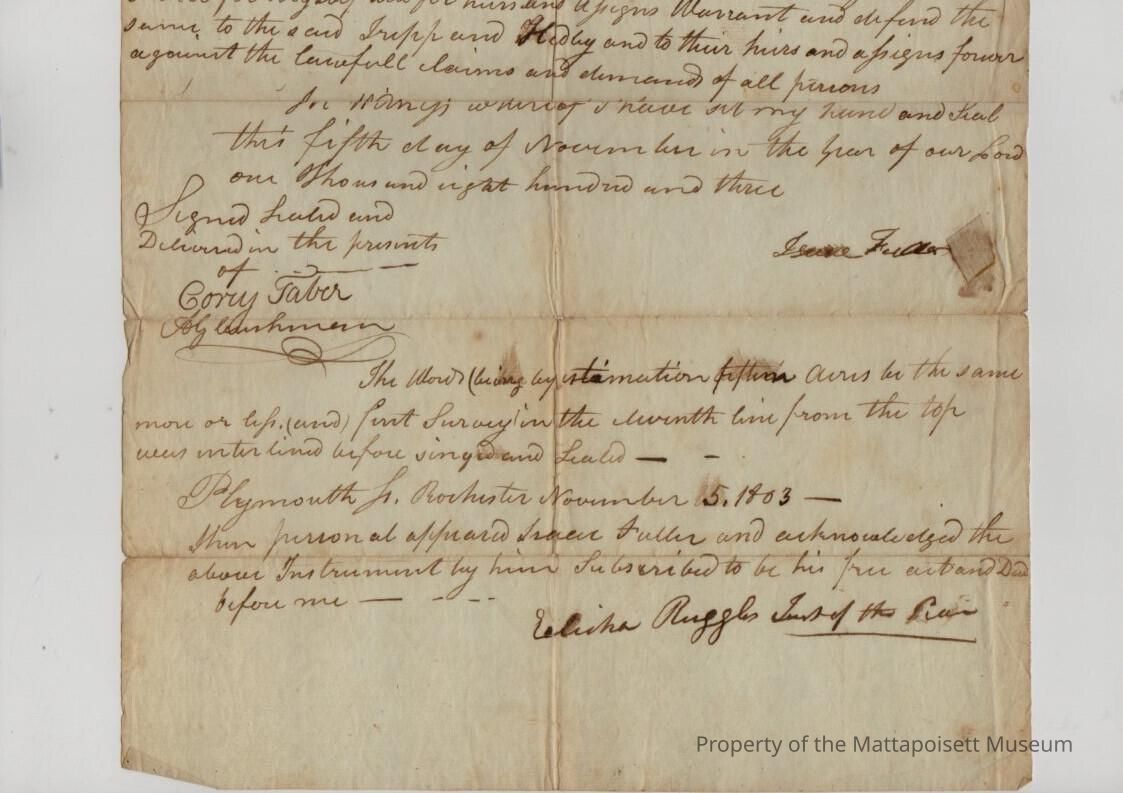 heirs and assigns Warrant and defend the
same to the said Tripp and Hedley and to their hiers and assigns forever
against the lawfull claims and demands of all persons
In Witness whereof I have set my hand and Seal
this fifth day of November in the year of our Lord
one thousand eight hundred and three
Signed Sealed and
Delivered in the presents
of
Isaac Fuller
Corey Taber
The Words (being by estimation fifteen Acres be the same
more or less, (and) first Survey in the eleventh line from the top
was interlined before singed and Sealed —
Plymouth Ss. Rochester November 5, 1803 —
then personal appeared Isaac Fuller and acknowledged the
above Instrument by him Subscribed to be his free act and Deed
before me —
Elisha Ruggles Just of the Peace
Property of the Mattapoisett Museum